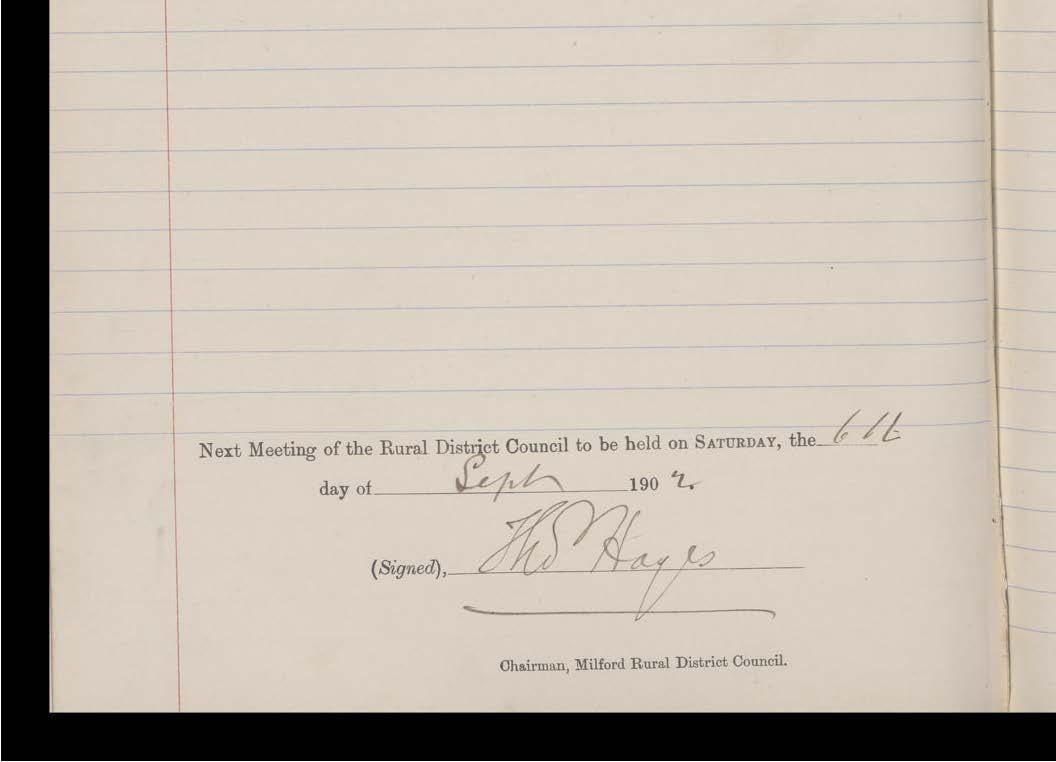 Next Meeting of the Rural District Council to be held on SATURDAY, the 6th
day of Sept 1902.
(Signed), Thos Hayes
Chairman, Milford Rural District Council.